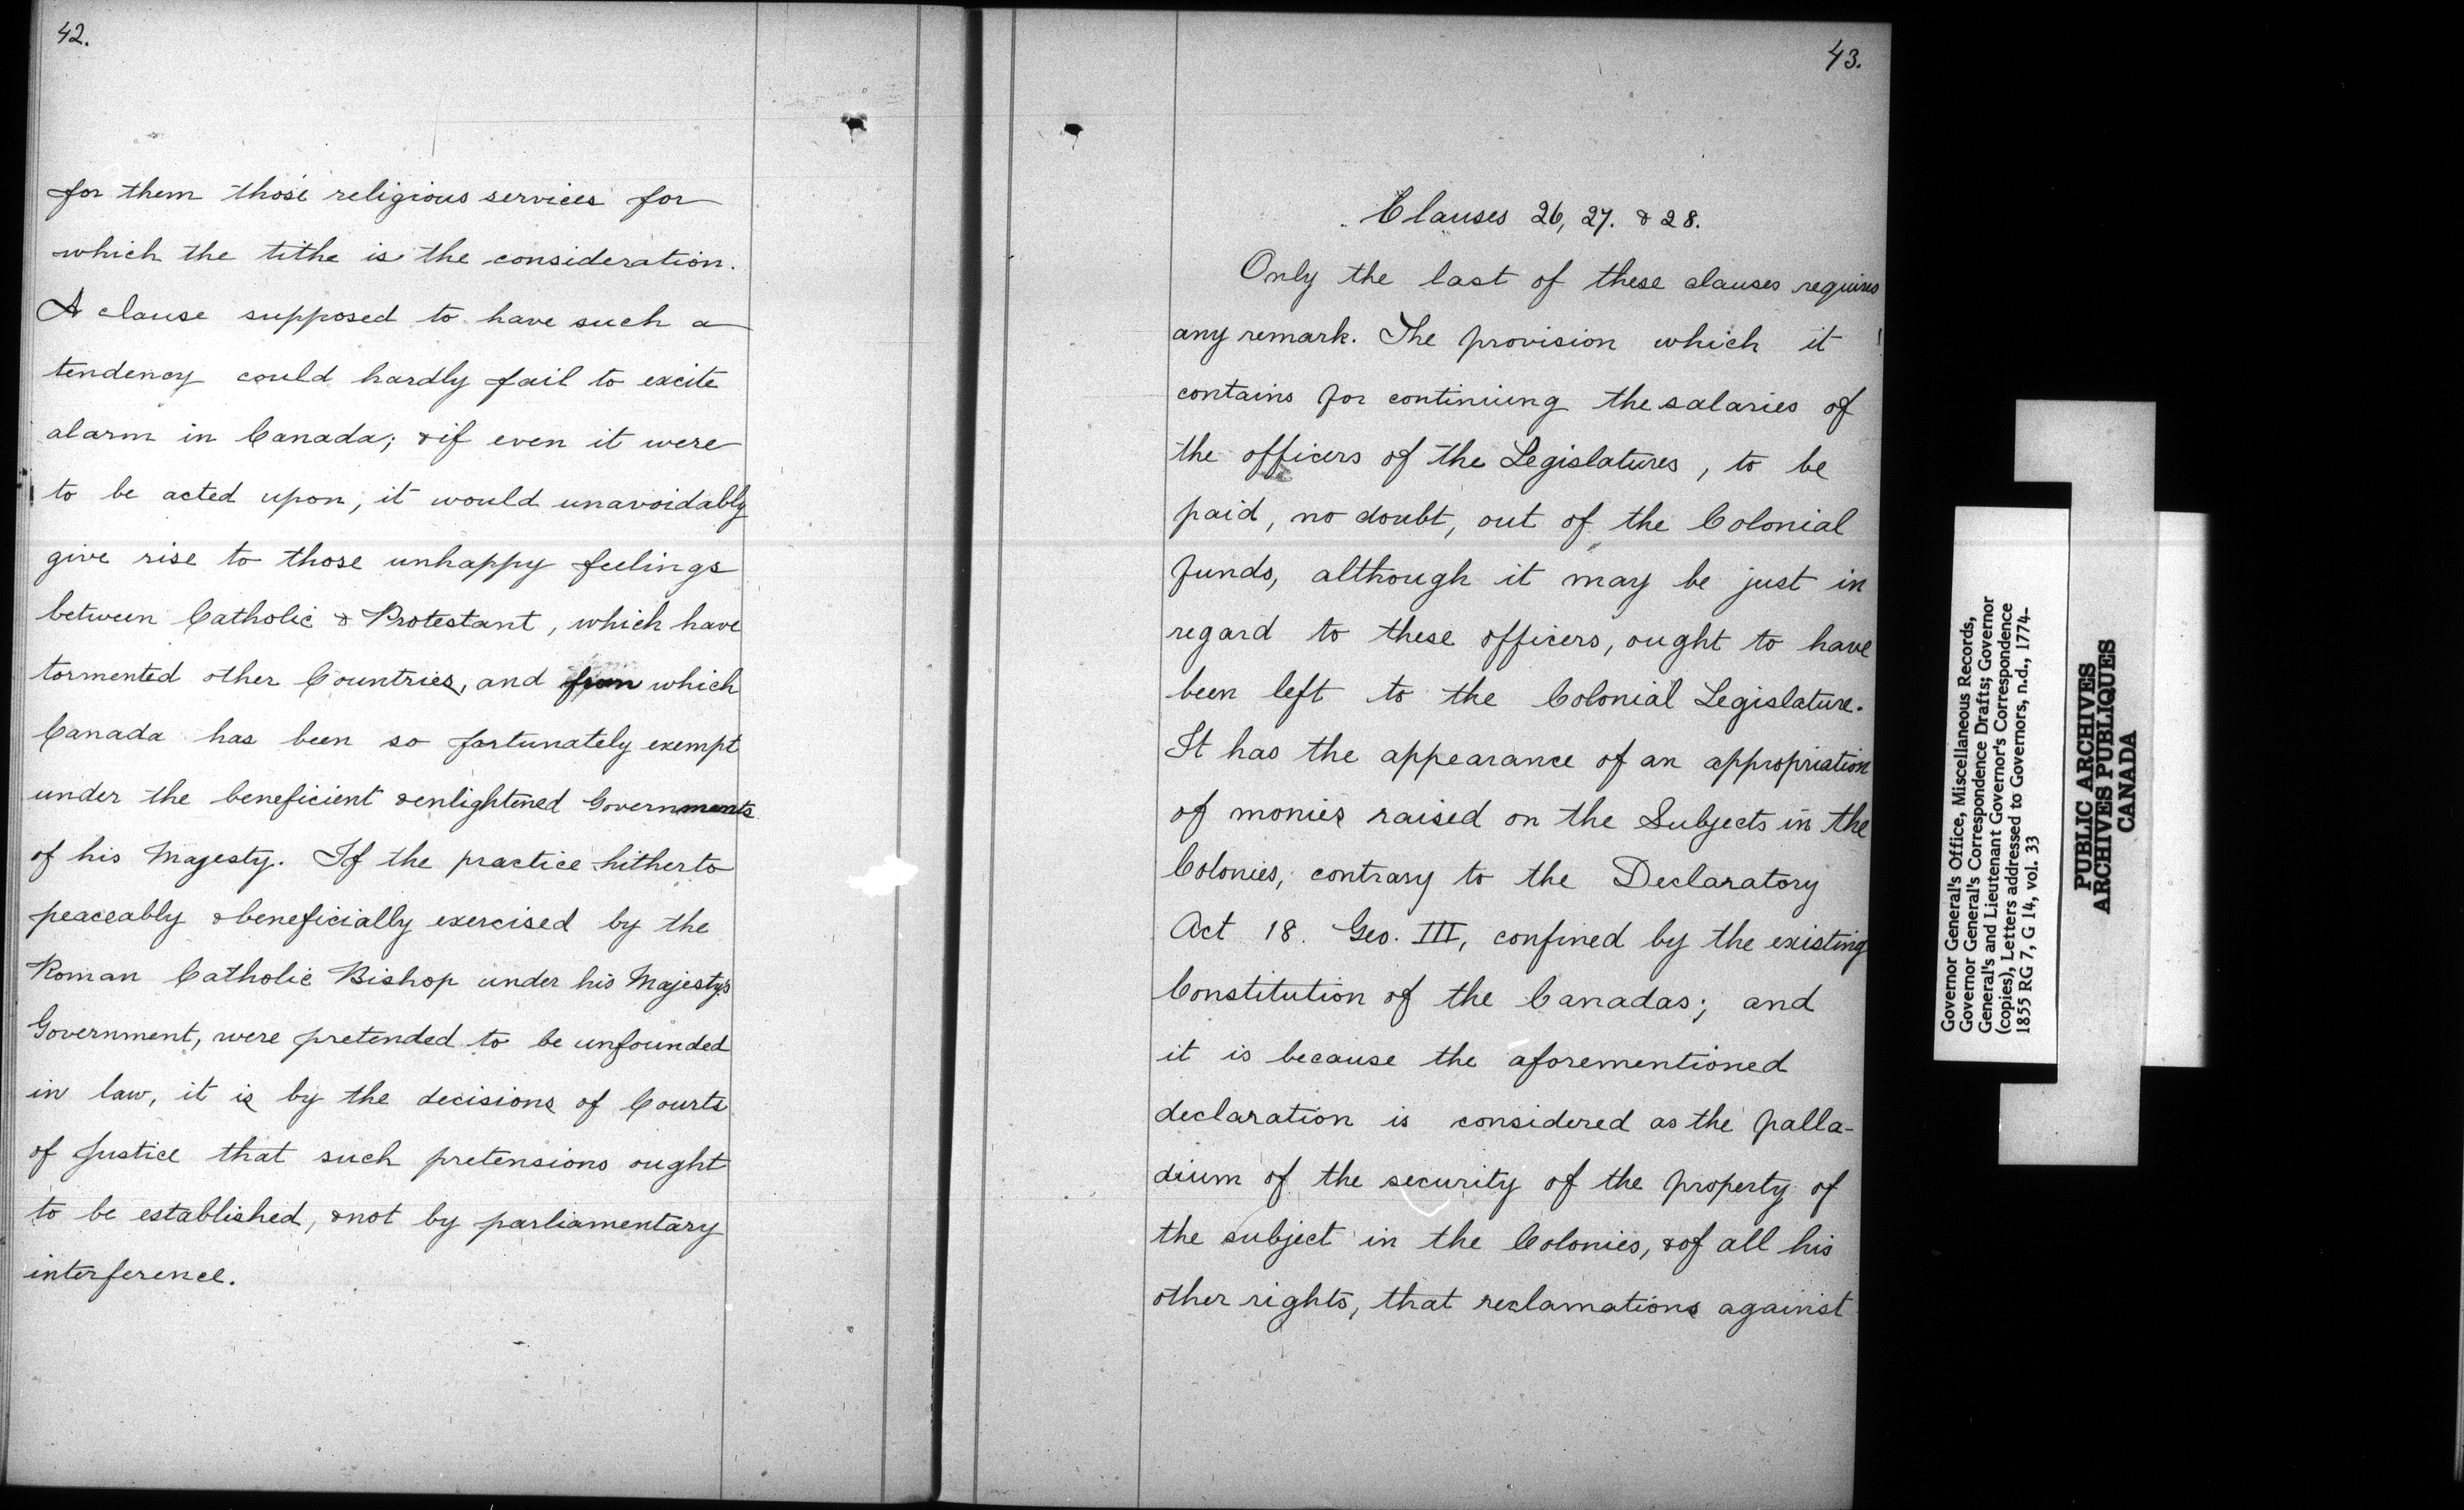 42.
for them those religious services for
which the tithe is the consideration.
A clause supposed to have such a
tendency could hardly fail to excite
alarm in Canada; & if even it were
to be acted upon, it would unavoidably
give rise to those unhappy feelings
between Catholic & Protestant, which have
tormented other Countries, and from which
Canada has been so fortunately exempt
under the beneficient & enlightened Governments
of his Majesty. If the practice hitherto
peaceably & beneficially exercised by the
Roman Catholic Bishop under his Majestys
Government, were pretended to be unfounded
in law, it is by the decisions of Courts
of Justice that such pretensions ought
to be established, & not by parliamentary
interference.
43.
Clauses 26, 27. & 28.
Only the last of these clauses requires
any remark. The provision which it
contains for continuing the salaries of
the officers of the Legislatures, to be
paid, no doubt, out of the Colonial
funds, although it may be just in
regard to these officers, ought to have
been left to the Colonial Legislature.
It has the appearance of an appropriation
of monies raised on the Subjects in the
Colonies, contrary to the Declaratory
Act 18. Geo. III, confined by the existing
Constitution of the Canadas; and
it is because the aforementioned
declaration is considered as the palla-
dium of the security of the property of
the subject in the Colonies, & of all his
other rights, that reclamations against
Governor General's Office, Miscellaneous Records,
Governor General's Correspondence Drafts; Governor
General's and Lieutenant Governor's Correspondence
(copies), Letters addressed to Governors, n.d., 1774-
1855 RG 7, G 14, vol. 33
PUBLIC ARCHIVES
ARCHIVES PUBLIQUES
CANADA